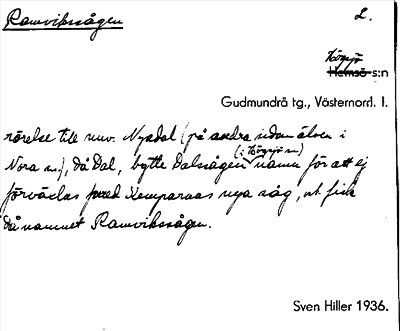 Ramvikssågen 2.
Högsjö
Hemsö s:n
Gudmundrå tg., Västernorrl. l.
rörelse till nuv. Nyadal (på andra sidan älven i
(i Högsjö sn)
Nora sn), då Dal, bytte Dalsågen namn för att ej
förväxlas med Kemparnas nya såg, ut. fick
då namnet Ramvikssågen.
Sven Hiller 1936.